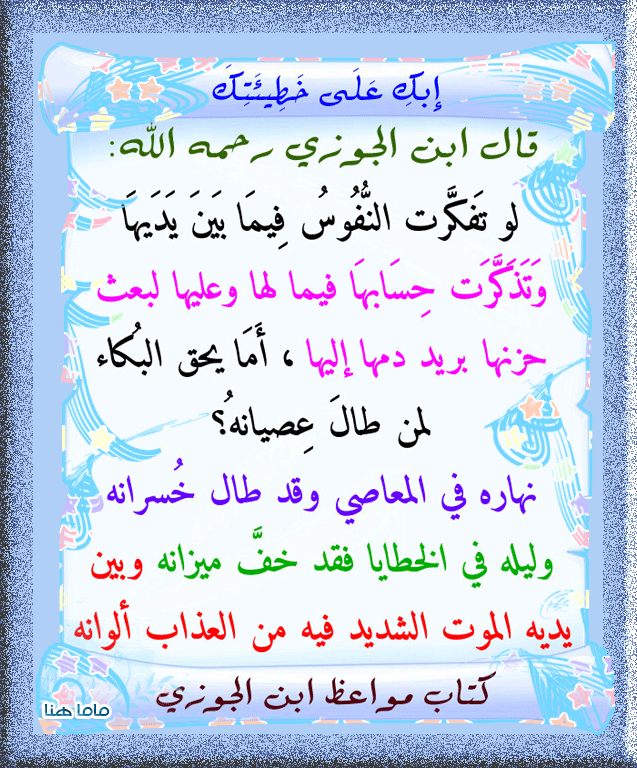 إِبكِ عَلَى خَطِيئَتِكَ
قال ابن الجوزي رحمه الله:
لو تَفكَّرت النُّفُوسُ فِيمَا بَينَ يَدَيهَا
وَتَذَكَّرَت حِسَابهَا فيما لها وعليها لبعث
حزنها بريد دمها إليها ، أَمَا يحق البُكاء
لمن طالَ عِصيانهُ؟
نهاره في المعاصي وقد طال خُسرانه
وليله في الخطايا فقد خفَّ ميزانه وبين
يديه الموت الشديد فيه من العذاب ألوانه
كتاب مواعظ ابن الجوزي
ماما هنا